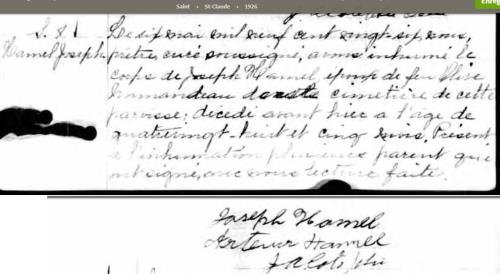 Saint • St Claude • 1926
Enreg
S. 8
Hamel Joseph
Le six mai mil neuf cent vingt-six, nous,
prêtre, curé soussigné, avons inhumé le
corps de Joseph Hamel, époux de feu Elise
dans le cimetière de cette
paroisse; décédé avant hier a l'âge de
quatrevingt-huit et cinq mois. Présent
a l'inhumation plusieurs parent qui
ont signé, avec nous lecture faite.
Joseph Hamel
Arteur Hamel
J A Coté